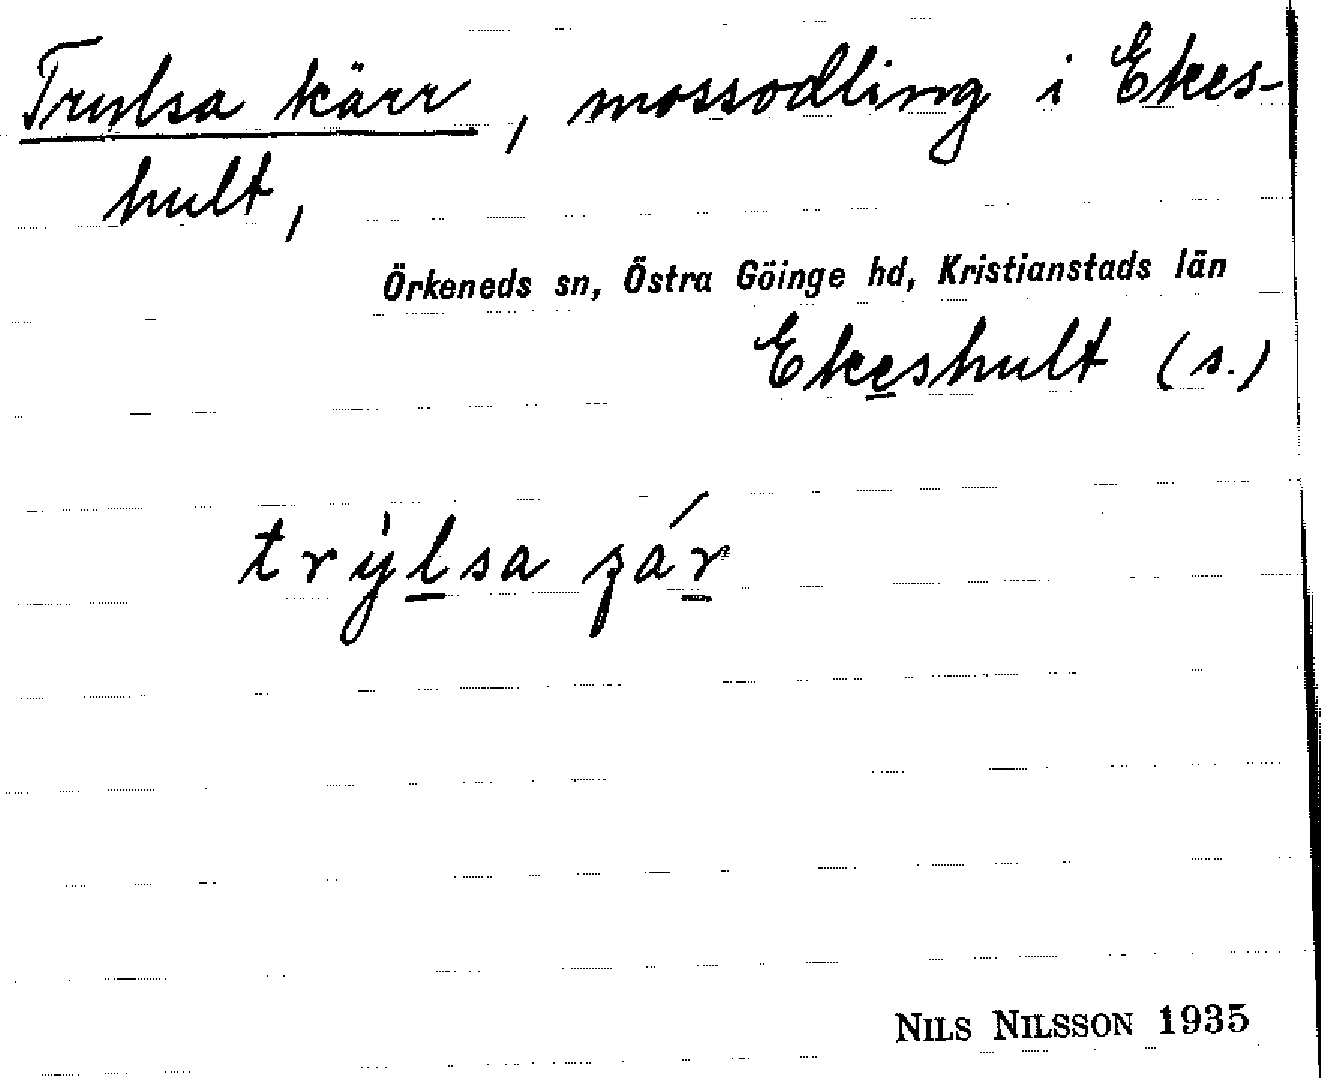 Trulsa kärr, mossodling i Ekes-
hult,
Örkeneds sn, Östra Göinge hd, Kristianstads län
Ekeshult (s.)
trỳlsa
NILS NILSSON 1935